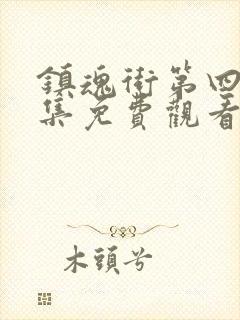 鎮魂街第四
集免費觀看
木頭兮